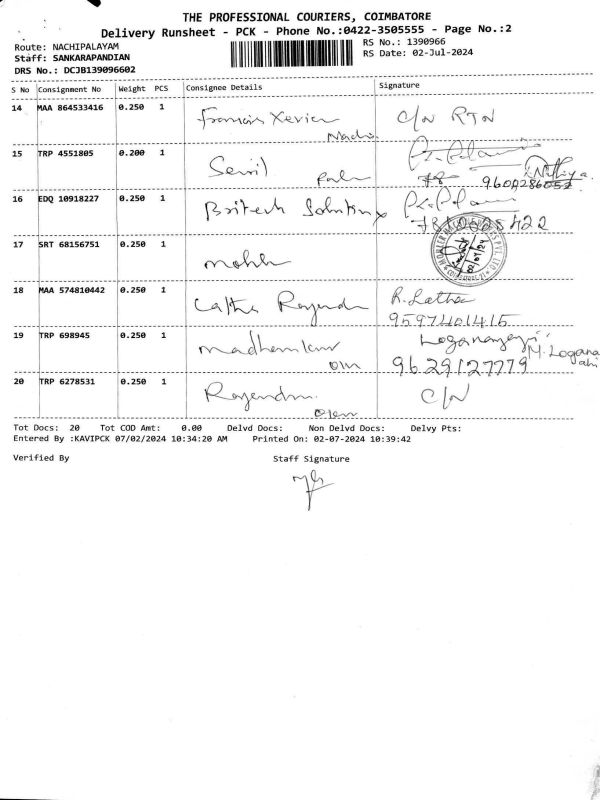 THE PROFESSIONAL COURIERS, COIMBATORE
Delivery Runsheet - PCK - Phone No.:0422-3505555 - Page No.:2
Route: NACHIPALAYAM
RS No.: 1390966
Staff: SANKARAPANDIAN
RS Date: 02-Jul-2024
DRS No.: DCJB139096602
S No Consignment No Weight PCS Consignee Details Signature
14 MAA 864533416 0.250 1 Francis Xevier C/N RTN
15 TRP 4551805 0.200 1
16 EDQ 10918227 0.250 1
17 SRT 68156751 0.250 1
02/07/24
18 MAA 574810442 0.250 1 Latha Rajendr R. Latha
9597401415
19 TRP 698945 0.250 1 Loganayagi
9629127779
20 TRP 6278531 0.250 1 Rajendra C/N
Tot Docs: 20 Tot COD Amt: 0.00 Delvd Docs: Non Delvd Docs: Delvy Pts:
Entered By :KAVIPCK 07/02/2024 10:34:20 AM Printed On: 02-07-2024 10:39:42
Verified By Staff Signature